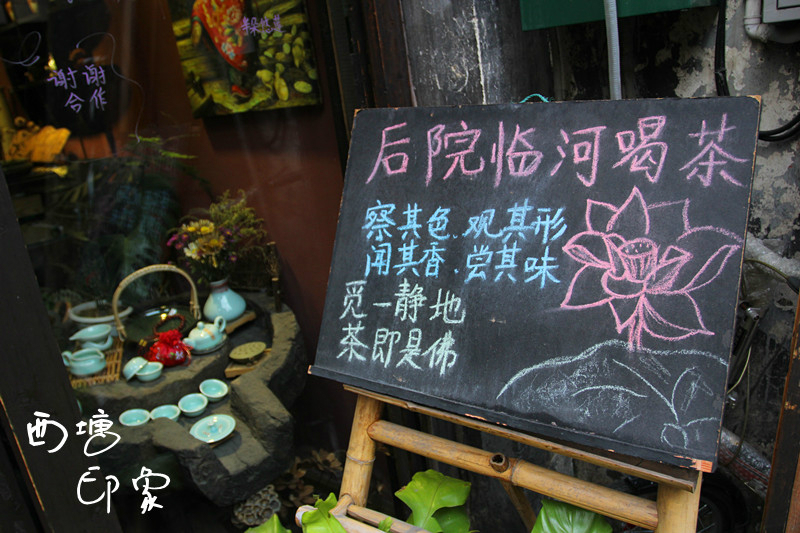 后院临河喝茶
察其色.观其形
闻其香.尝其味
觅一静地
茶即是佛
谢谢
合作
西塘
印象